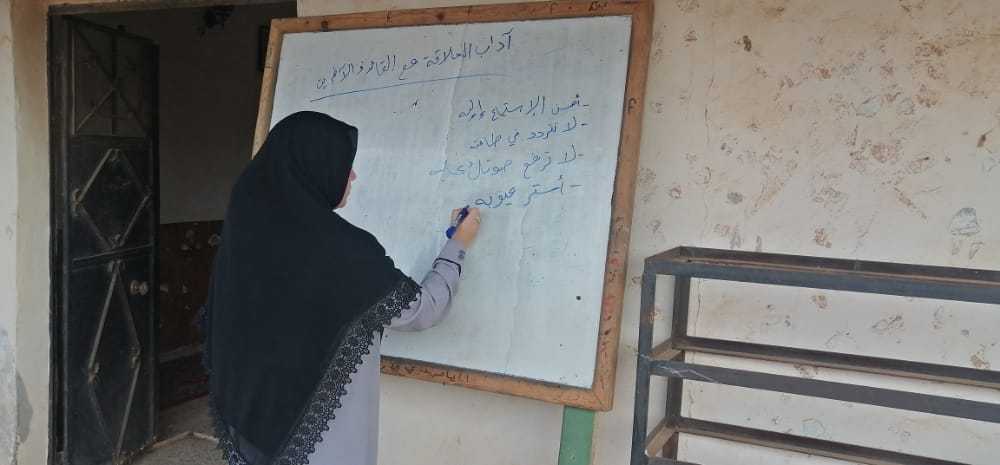 آداب العلاقة مع القائد والآخرين
- أحسن الاستماع إليه
- لا تتردد في طاعته
- لا ترفع صوتك عليه
- أستر عيوبه